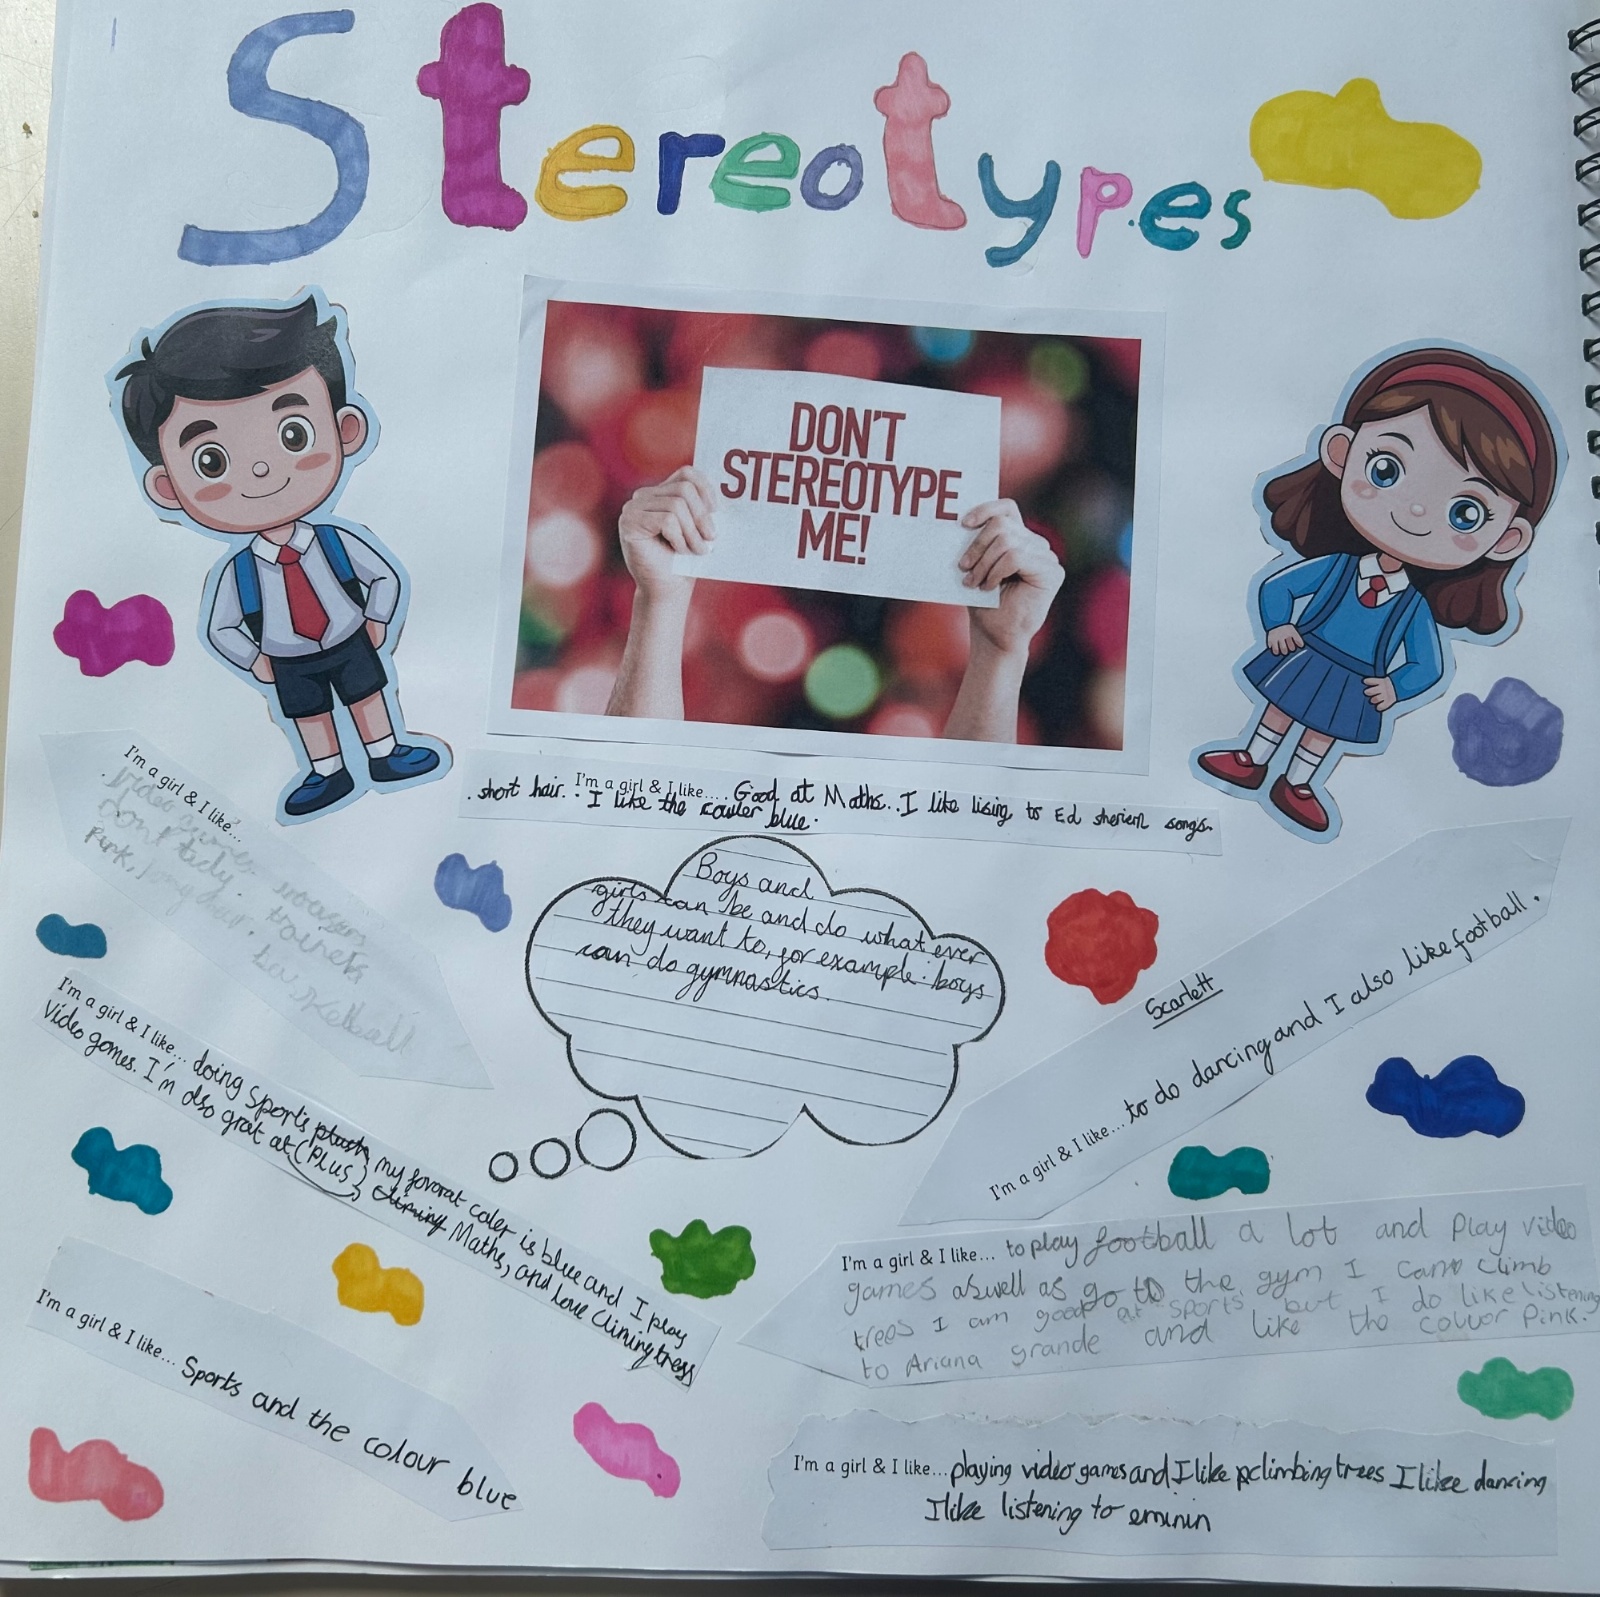 Stereotypes
DON'T
STEREOTYPE
ME!
I'm a girl & I like...
video games.
don't tidy. trainers
Pink, long hair.
I'm a girl & I like.... Good at Maths.. I like lising to Ed sherien songs.
. short hair. . I like the couler blue.
Boys and
girls can be and do what ever
they want to, for example: boys
can do gymnastics.
Scarlett
I'm a girl & I like... to do dancing and I also like football.
I'm a girl & I like... doing sports plush my favorat coler is blue and I play
Video games. I'm also grat at (Plus) climing Maths, and love climing tress
I'm a girl & I like... to play football a lot and play video
games aswell as go to the gym I can climb
trees I am good at sports but I do like listening
to Ariana grande and like the colour Pink.
I'm a girl & I like... Sports and the colour blue
I'm a girl & I like... playing video games and I like pclimbing trees I like dancing
I like listening to eminin